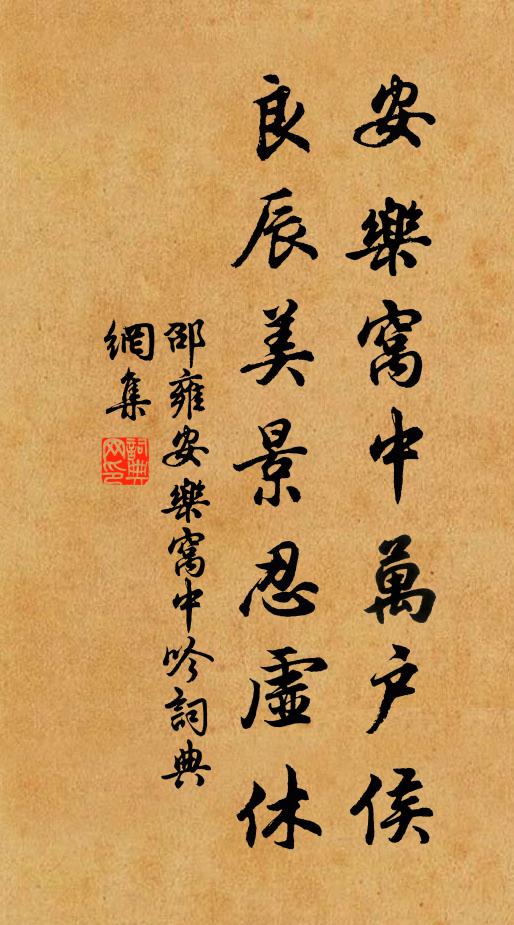 安樂窩中萬戶侯
良辰美景忍虛休
邵雍安樂窩中吟詞典
網集
詞典
網印